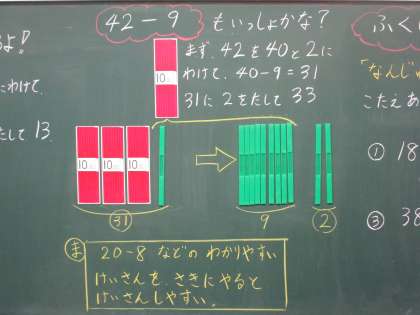 るよ!
にわけて、
たして13.
42-9 もいっしょかな?
まず、42を40と2に
わけて、40-9=31
31に2をたして33
10
10 10 10
31
9
2
ま 20-8 などの わかりやすい
けいさんを、さきにやると
けいさんしやすい。
ふく
「なんじゅ
こたえあ
① 18
③ 38